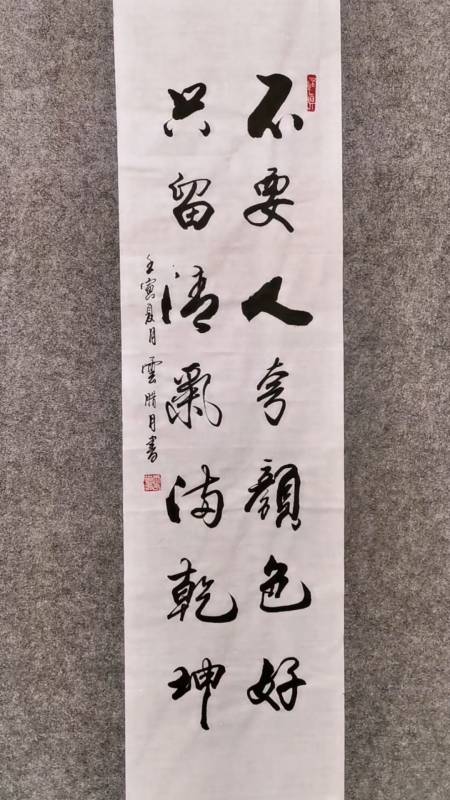 不要人夸顏色好
只留清氣滿乾坤
壬寅夏月雲腊月書